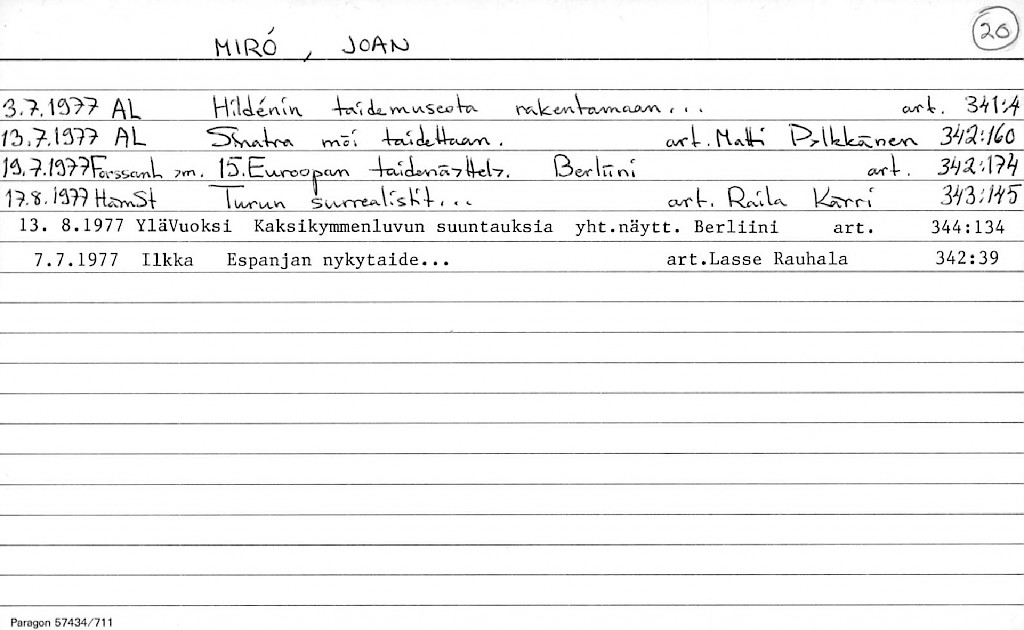 MIRÓ, JOAN 20
3.7.1977 AL Hildénin taidemuseota rakentamaan... art. 341:4
13.7.1977 AL Sinatra möi taidettaan. art. Matti Pylkkänen 342:160
19.7.1977 Forssanl 15. Euroopan taidenäyttely. Berliini art. 342:174
17.8.1977 HämSt Turun surrealistit... art. Raila Karri 343:145
13. 8.1977 YläVuoksi Kaksikymmenluvun suuntauksia yht.näytt. Berliini art. 344:134
7.7.1977 Ilkka Espanjan nykytaide... art.Lasse Rauhala 342:39
Paragon 57434/711